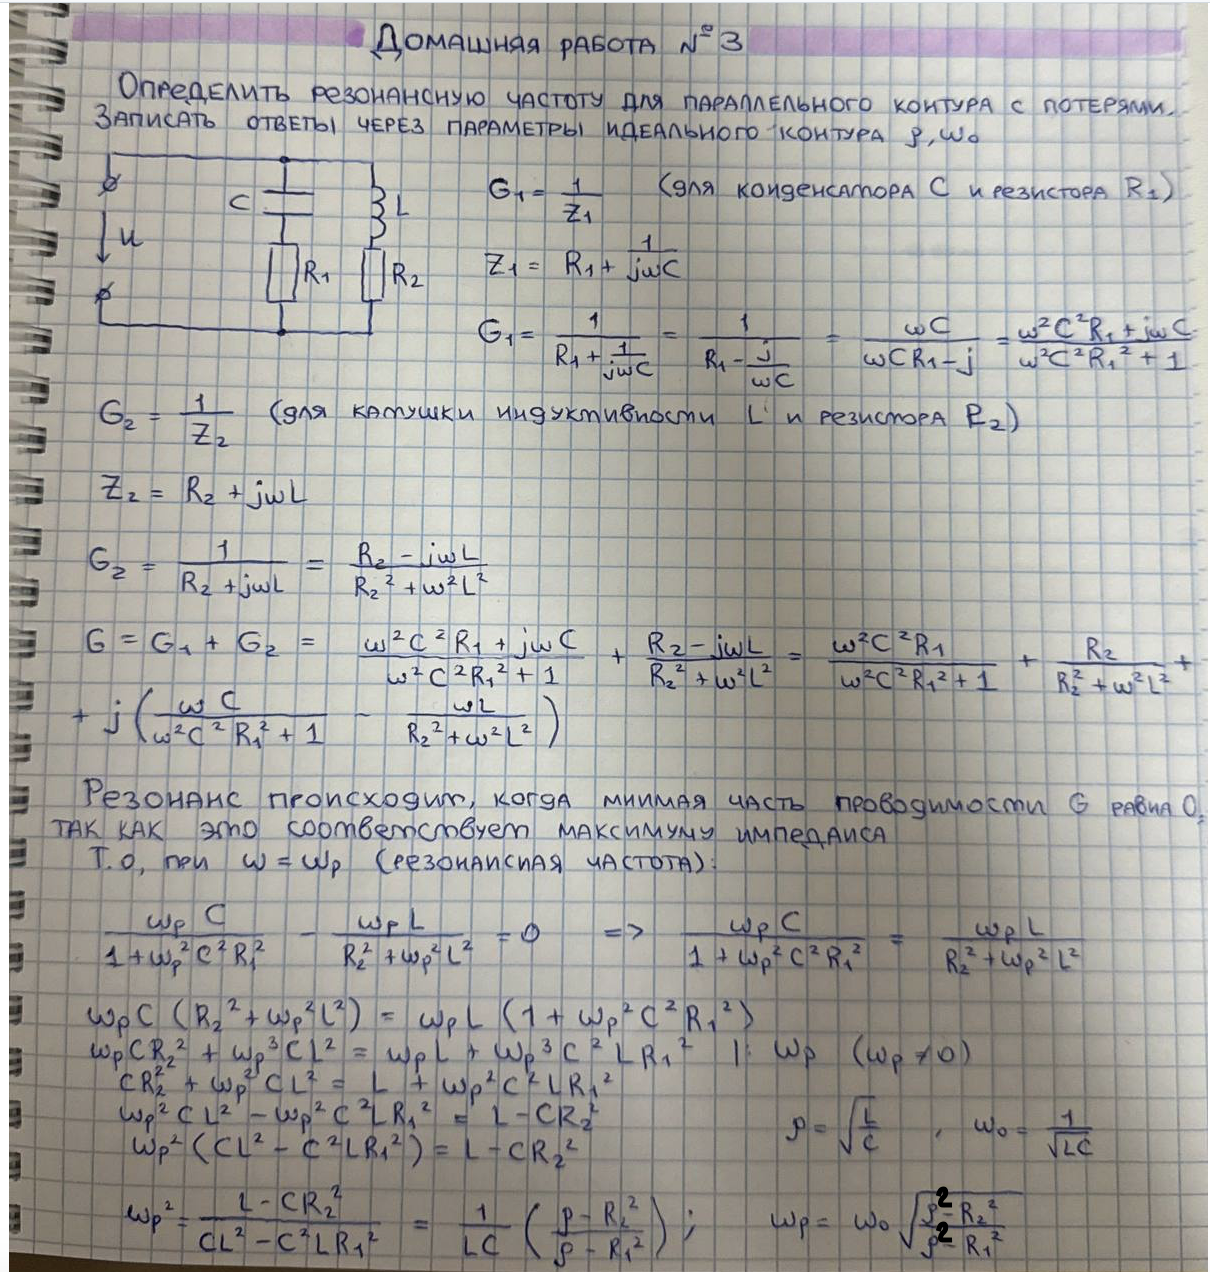 Домашняя работа №3
Определить резонансную частоту для параллельного контура с потерями.
Записать ответы через параметры идеального контура ρ, ω₀
C L U R₁ R₂
G₁ = 1/Z₁ (для конденсатора C и резистора R₁)
Z₁ = R₁ + 1/(jωC)
G₁ = 1/(R₁ + 1/(jωC)) = 1/(R₁ - j/(ωC)) = ωC/(ωCR₁ - j) = (ω²C²R₁ + jωC)/(ω²C²R₁² + 1)
G₂ = 1/Z₂ (для катушки индуктивности L и резистора R₂)
Z₂ = R₂ + jωL
G₂ = 1/(R₂ + jωL) = (R₂ - jωL)/(R₂² + ω²L²)
G = G₁ + G₂ = (ω²C²R₁ + jωC)/(ω²C²R₁² + 1) + (R₂ - jωL)/(R₂² + ω²L²) = ω²C²R₁/(ω²C²R₁² + 1) + R₂/(R₂² + ω²L²) +
+ j(ωC/(ω²C²R₁² + 1) - ωL/(R₂² + ω²L²))
Резонанс происходит, когда мнимая часть проводимости G равна 0,
так как это соответствует максимуму импеданса
Т.о, при ω = ωₚ (резонансная частота):
ωₚC/(1 + ωₚ²C²R₁²) - ωₚL/(R₂² + ωₚ²L²) = 0 => ωₚC/(1 + ωₚ²C²R₁²) = ωₚL/(R₂² + ωₚ²L²)
ωₚC (R₂² + ωₚ²L²) = ωₚL (1 + ωₚ²C²R₁²)
ωₚCR₂² + ωₚ³CL² = ωₚL + ωₚ³C²LR₁² |: ωₚ (ωₚ ≠ 0)
CR₂² + ωₚ²CL² = L + ωₚ²C²LR₁²
ωₚ²CL² - ωₚ²C²LR₁² = L - CR₂²
ωₚ²(CL² - C²LR₁²) = L - CR₂² ρ = √(L/C) , ω₀ = 1/√(LC)
ωₚ² = (L - CR₂²)/(CL² - C²LR₁²) = 1/(LC) ((ρ - R₂²)/(ρ - R₁²)); ωₚ = ω₀ √((ρ² - R₂²)/(ρ² - R₁²))